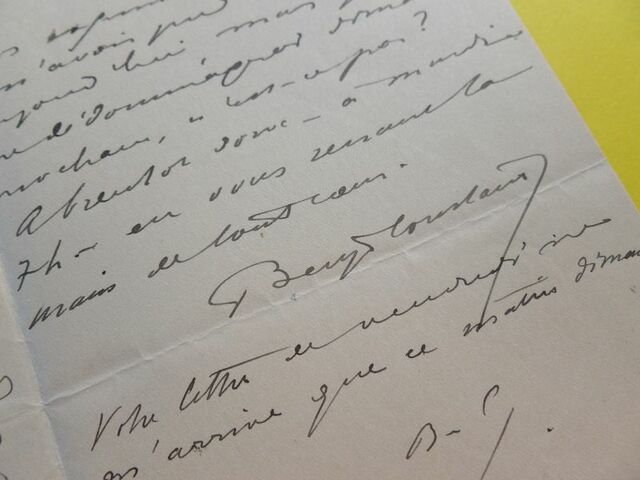 m'avais pu
aujourd'hui mais
dédommager
prochain, n'est-ce pas?
A bientôt donc - à mardi
7h - en vous serrant la
main de tout cœur.
Benj Constant
Votre lettre de vendredi ne
m'arrive que ce matin diman
B-C.